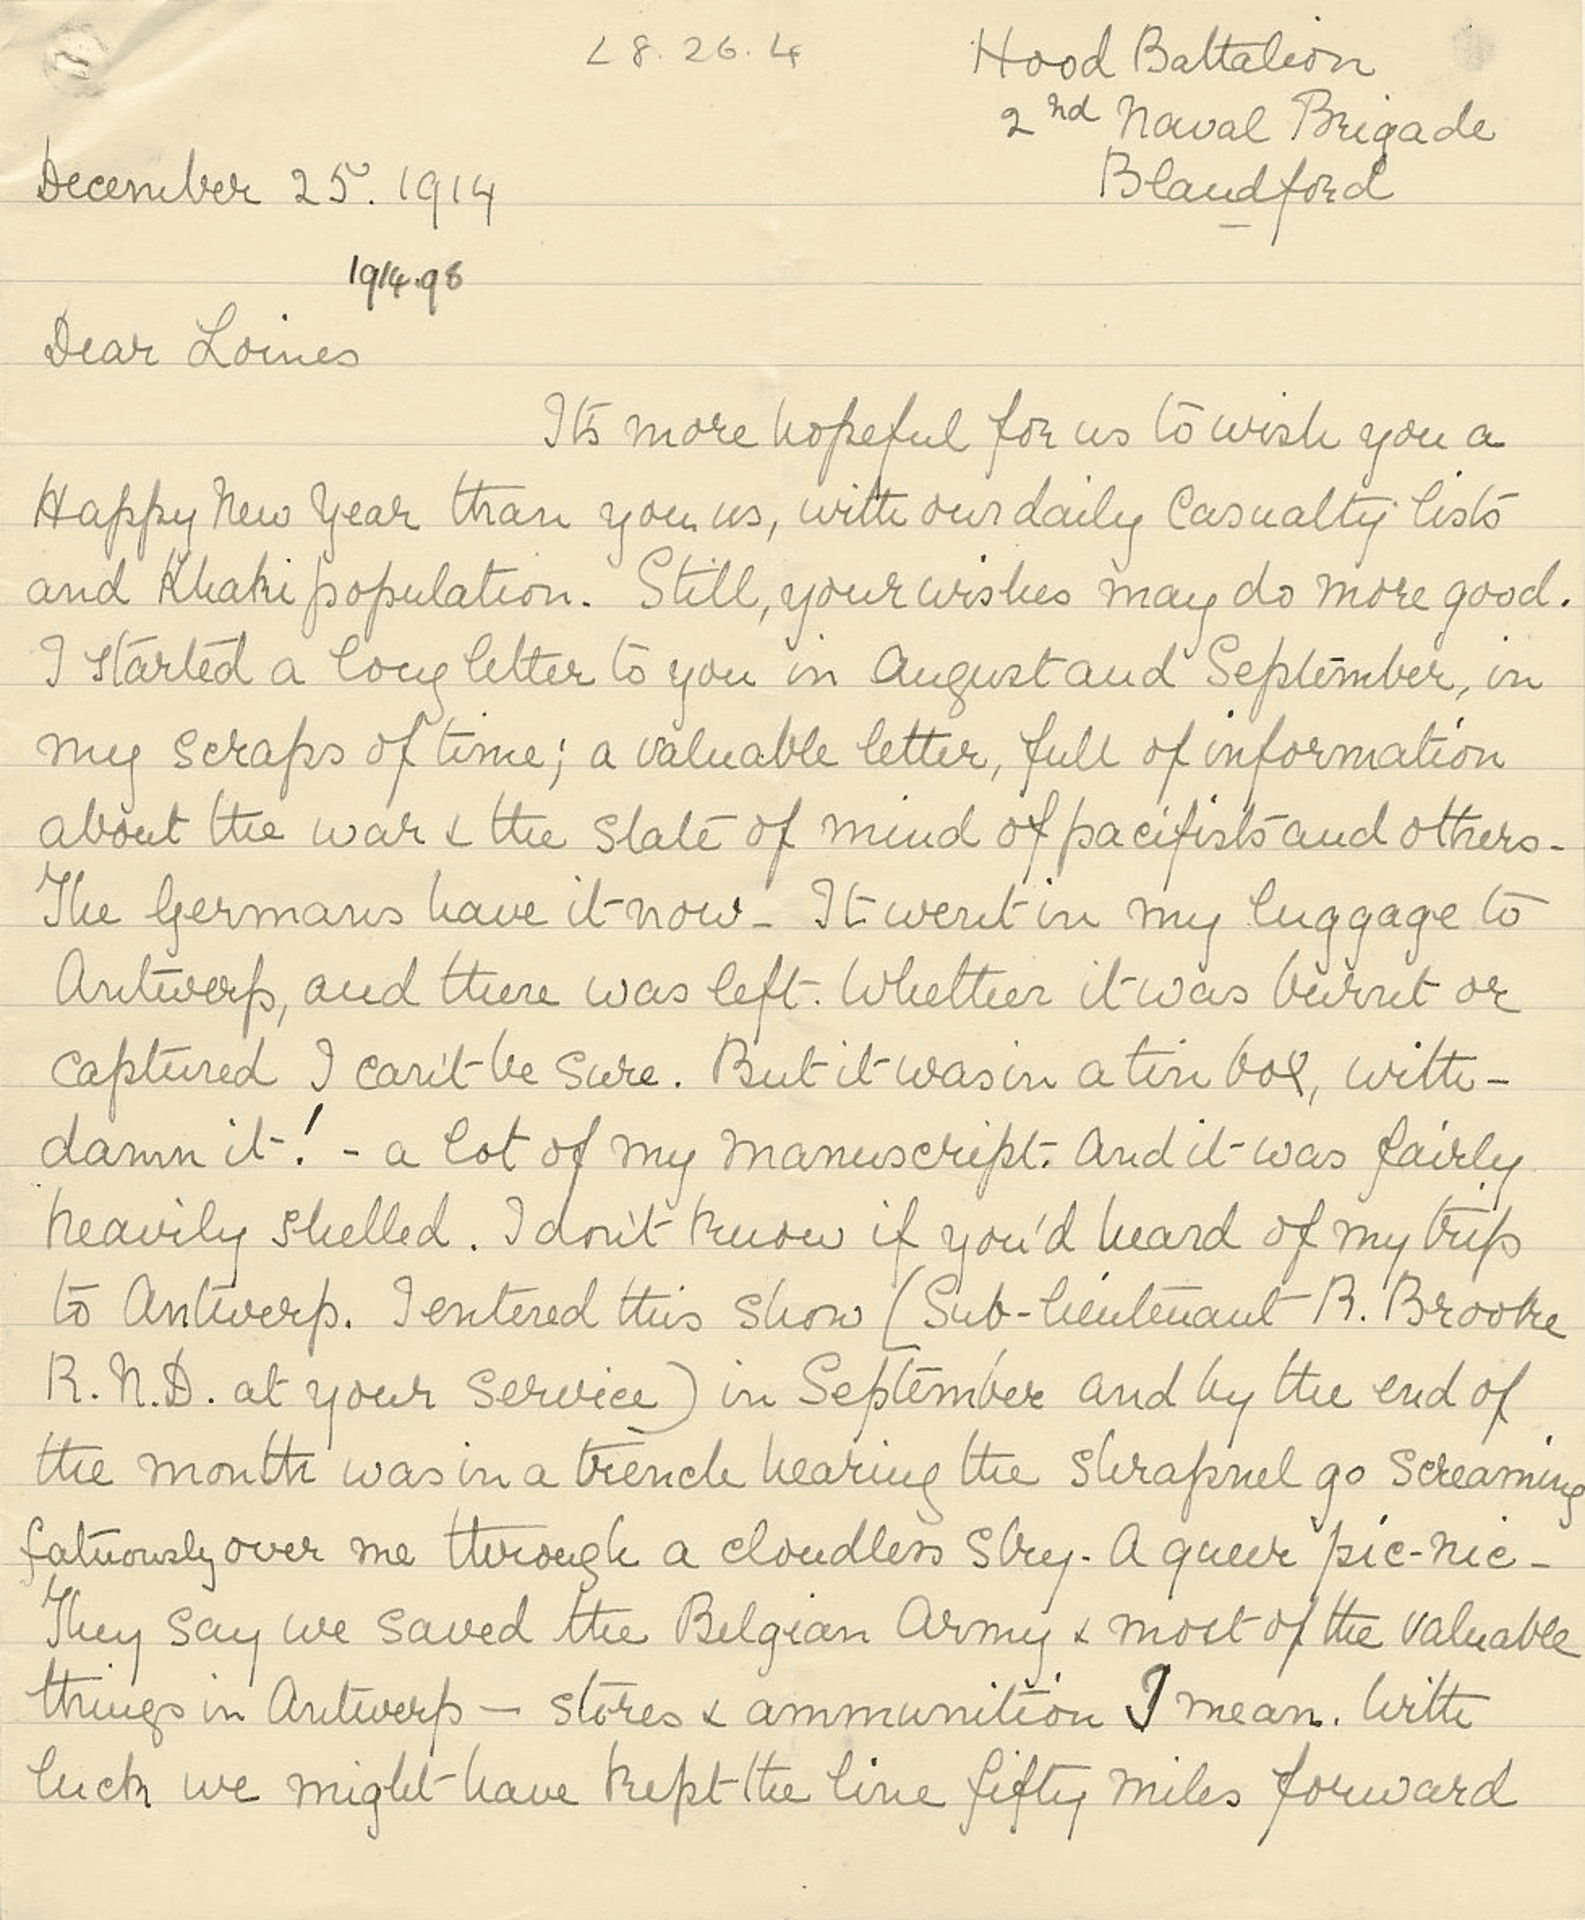 L 8. 26. 4
Hood Battalion
2nd Naval Brigade
Blandford
December 25. 1914
1914.98
Dear Loines
Its more hopeful for us to wish you a
Happy New Year than you us, with our daily Casualty lists
and Khaki population. Still, your wishes may do more good.
I started a long letter to you in August and September, in
my scraps of time; a valuable letter, full of information
about the war & the state of mind of pacifists and others-
The Germans have it now- It went in my luggage to
Antwerp, and there was left. Whether it was burnt or
captured I can't be sure. But it was in a tin box, with-
damn it! - a lot of my manuscript. And it was fairly
heavily shelled. I don't know if you'd heard of my trip
to Antwerp. I entered this show (Sub-lieutenant R. Brooke
R.N.D. at your service) in September and by the end of
the month was in a trench hearing the shrapnel go screaming
fatuously over me through a cloudless sky. A queer pic-nic-
They say we saved the Belgian Army & most of the valuable
things in Antwerp - stores & ammunition I mean. With
luck we might have kept the line fifty miles forward